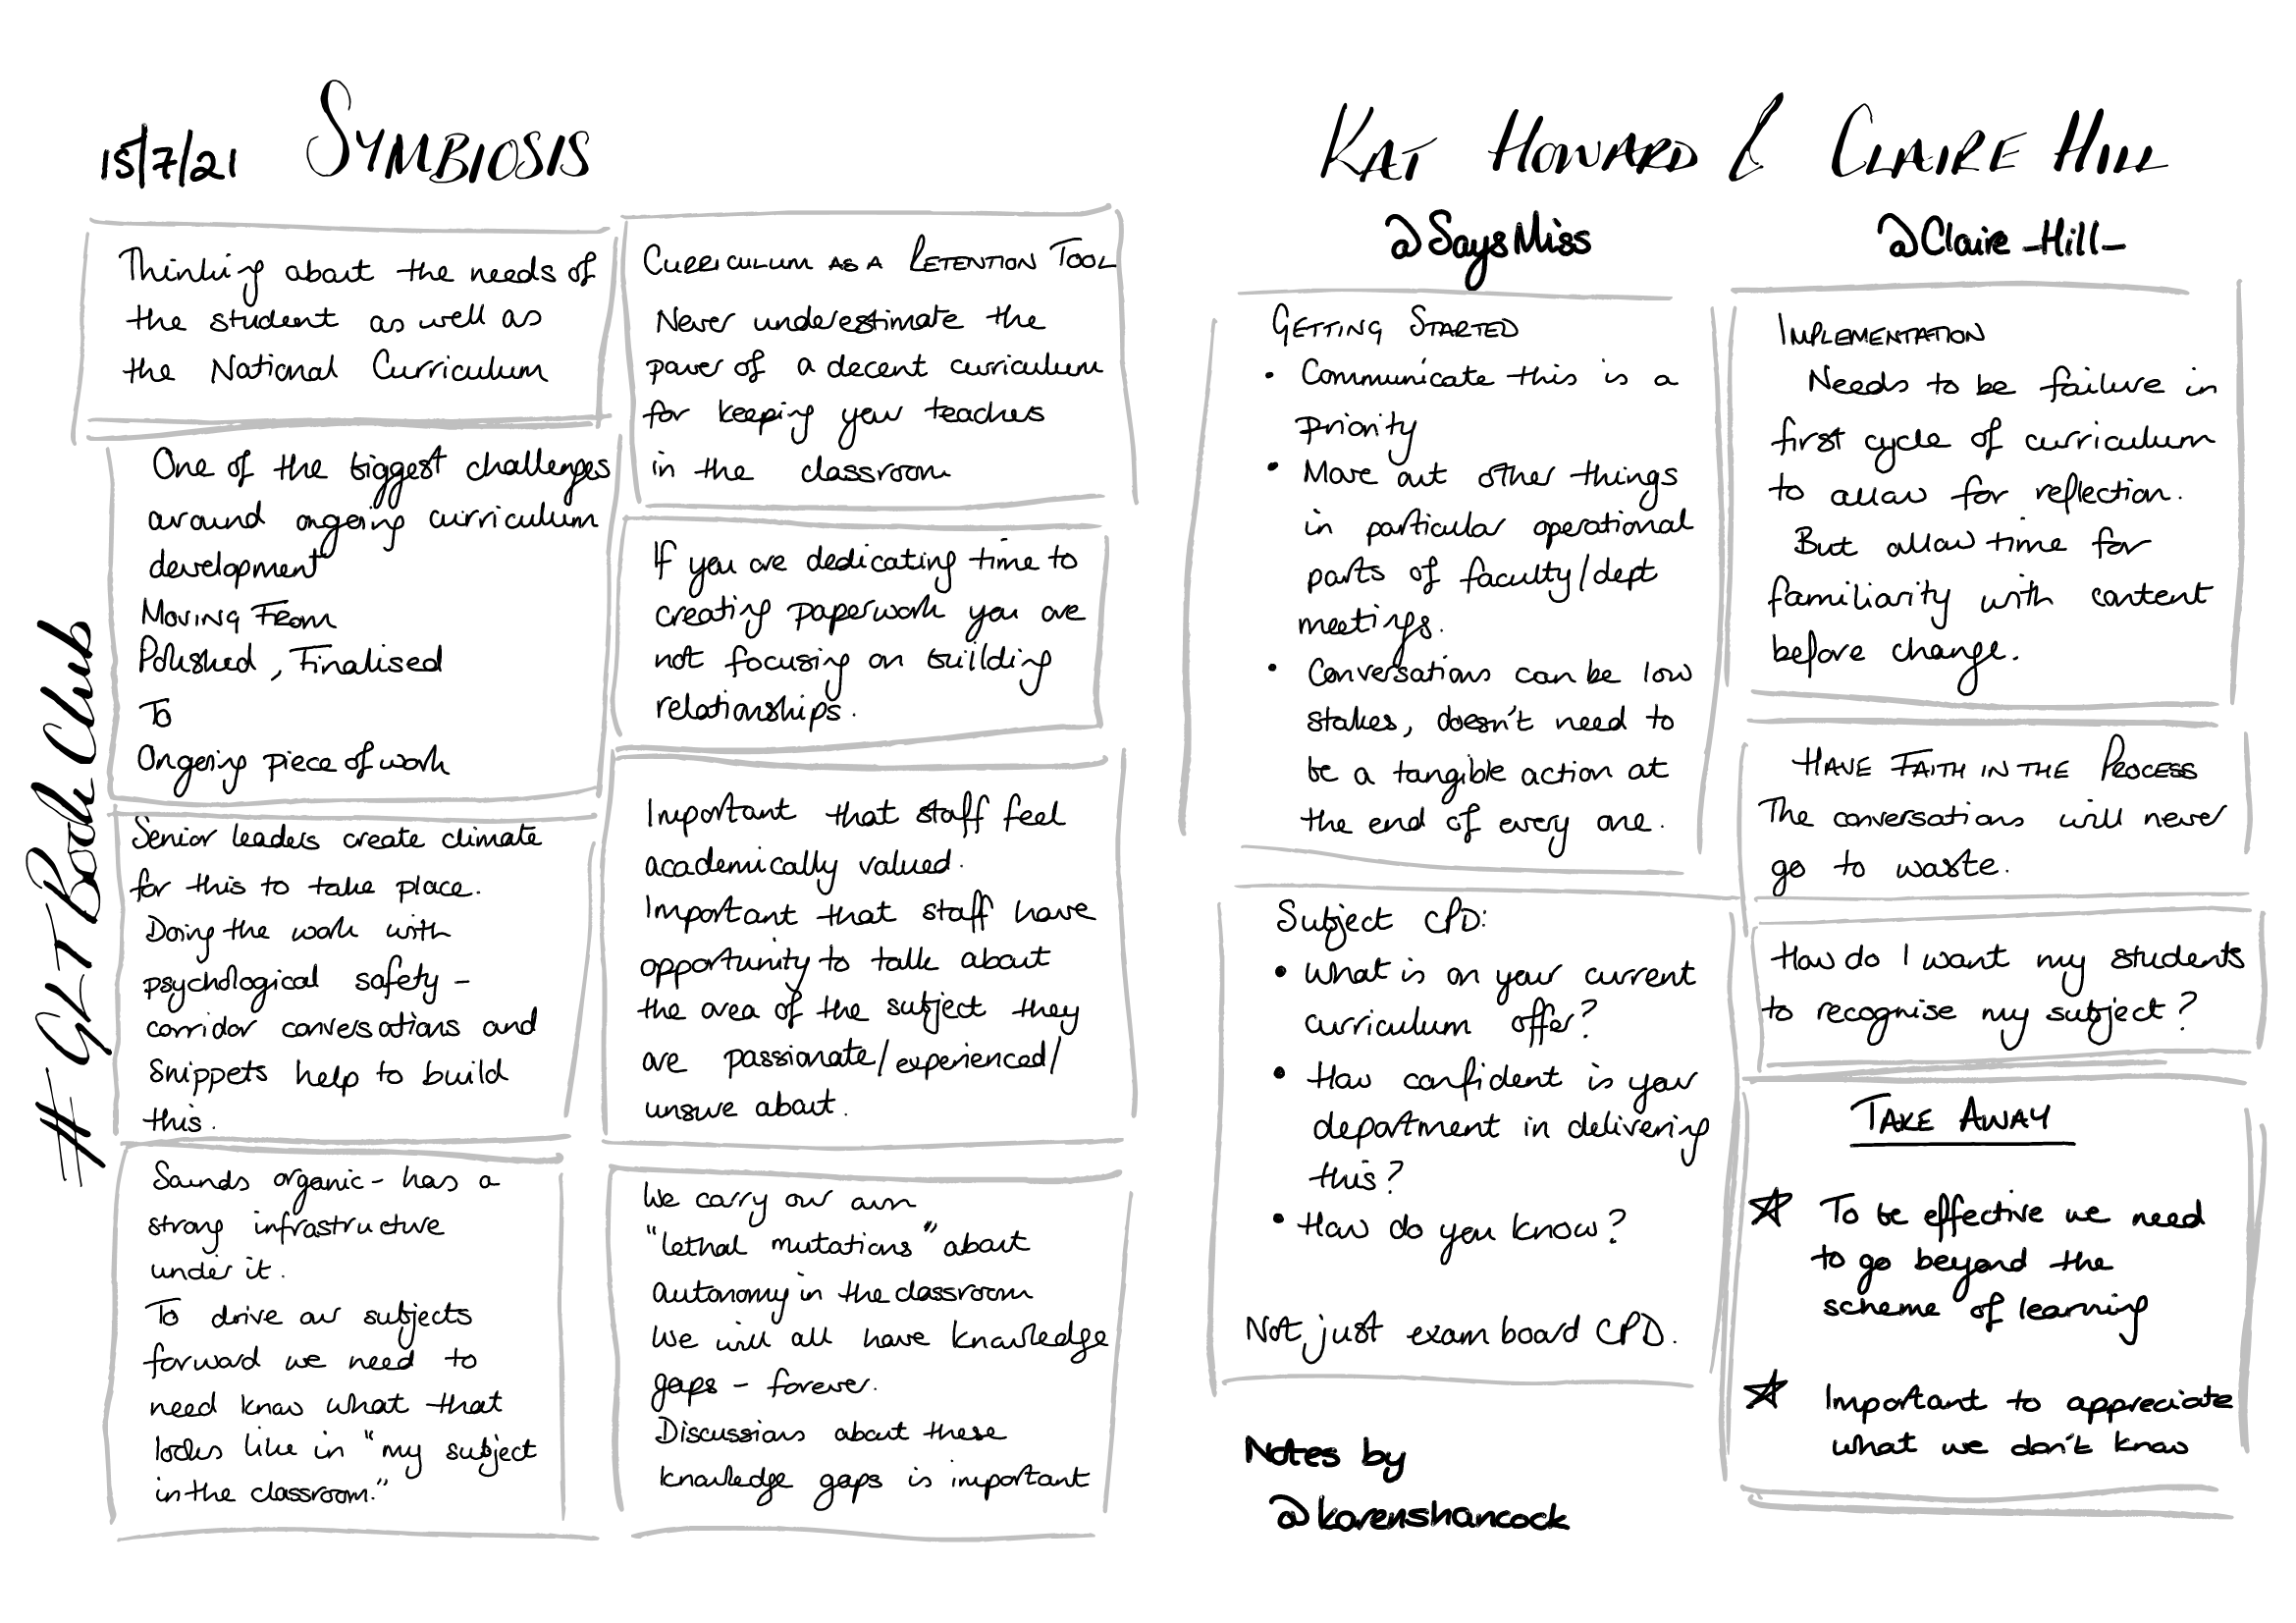 15/7/21 SYMBIOSIS
KAT HOWARD & CLAIRE HILL
@SaysMiss
@Claire_Hill_
#GLTBookClub
Thinking about the needs of
the student as well as
the National Curriculum
One of the biggest challenges
around ongoing curriculum
development
MOVING FROM
Polished, Finalised
To
Ongoing piece of work
Senior leaders create climate
for this to take place.
Doing the work with
psychological safety -
corridor conversations and
snippets help to build
this.
Sounds organic - has a
strong infrastructure
under it.
To drive our subjects
forward we need to
need know what that
looks like in "my subject
in the classroom."
CURRICULUM AS A RETENTION TOOL
Never underestimate the
power of a decent curriculum
for keeping your teachers
in the classroom
If you are dedicating time to
creating paperwork you are
not focusing on building
relationships.
Important that staff feel
academically valued.
Important that staff have
opportunity to talk about
the area of the subject they
are passionate/experienced/
unsure about.
We carry our own
"lethal mutations" about
autonomy in the classroom
We will all have knowledge
gaps - forever.
Discussions about these
knowledge gaps is important
GETTING STARTED
• Communicate this is a
priority
• Move out other things
in particular operational
parts of faculty/dept
meetings.
• Conversations can be low
stakes, doesn't need to
be a tangible action at
the end of every one.
Subject CPD:
• What is on your current
curriculum offer?
• How confident is your
department in delivering
this?
• How do you know?
Not just exam board CPD.
Notes by
@karenshancock
IMPLEMENTATION
Needs to be failure in
first cycle of curriculum
to allow for reflection.
But allow time for
familiarity with content
before change.
HAVE FAITH IN THE PROCESS
The conversations will never
go to waste.
How do I want my students
to recognise my subject?
TAKE AWAY
☆ To be effective we need
to go beyond the
scheme of learning
☆ Important to appreciate
what we don't know